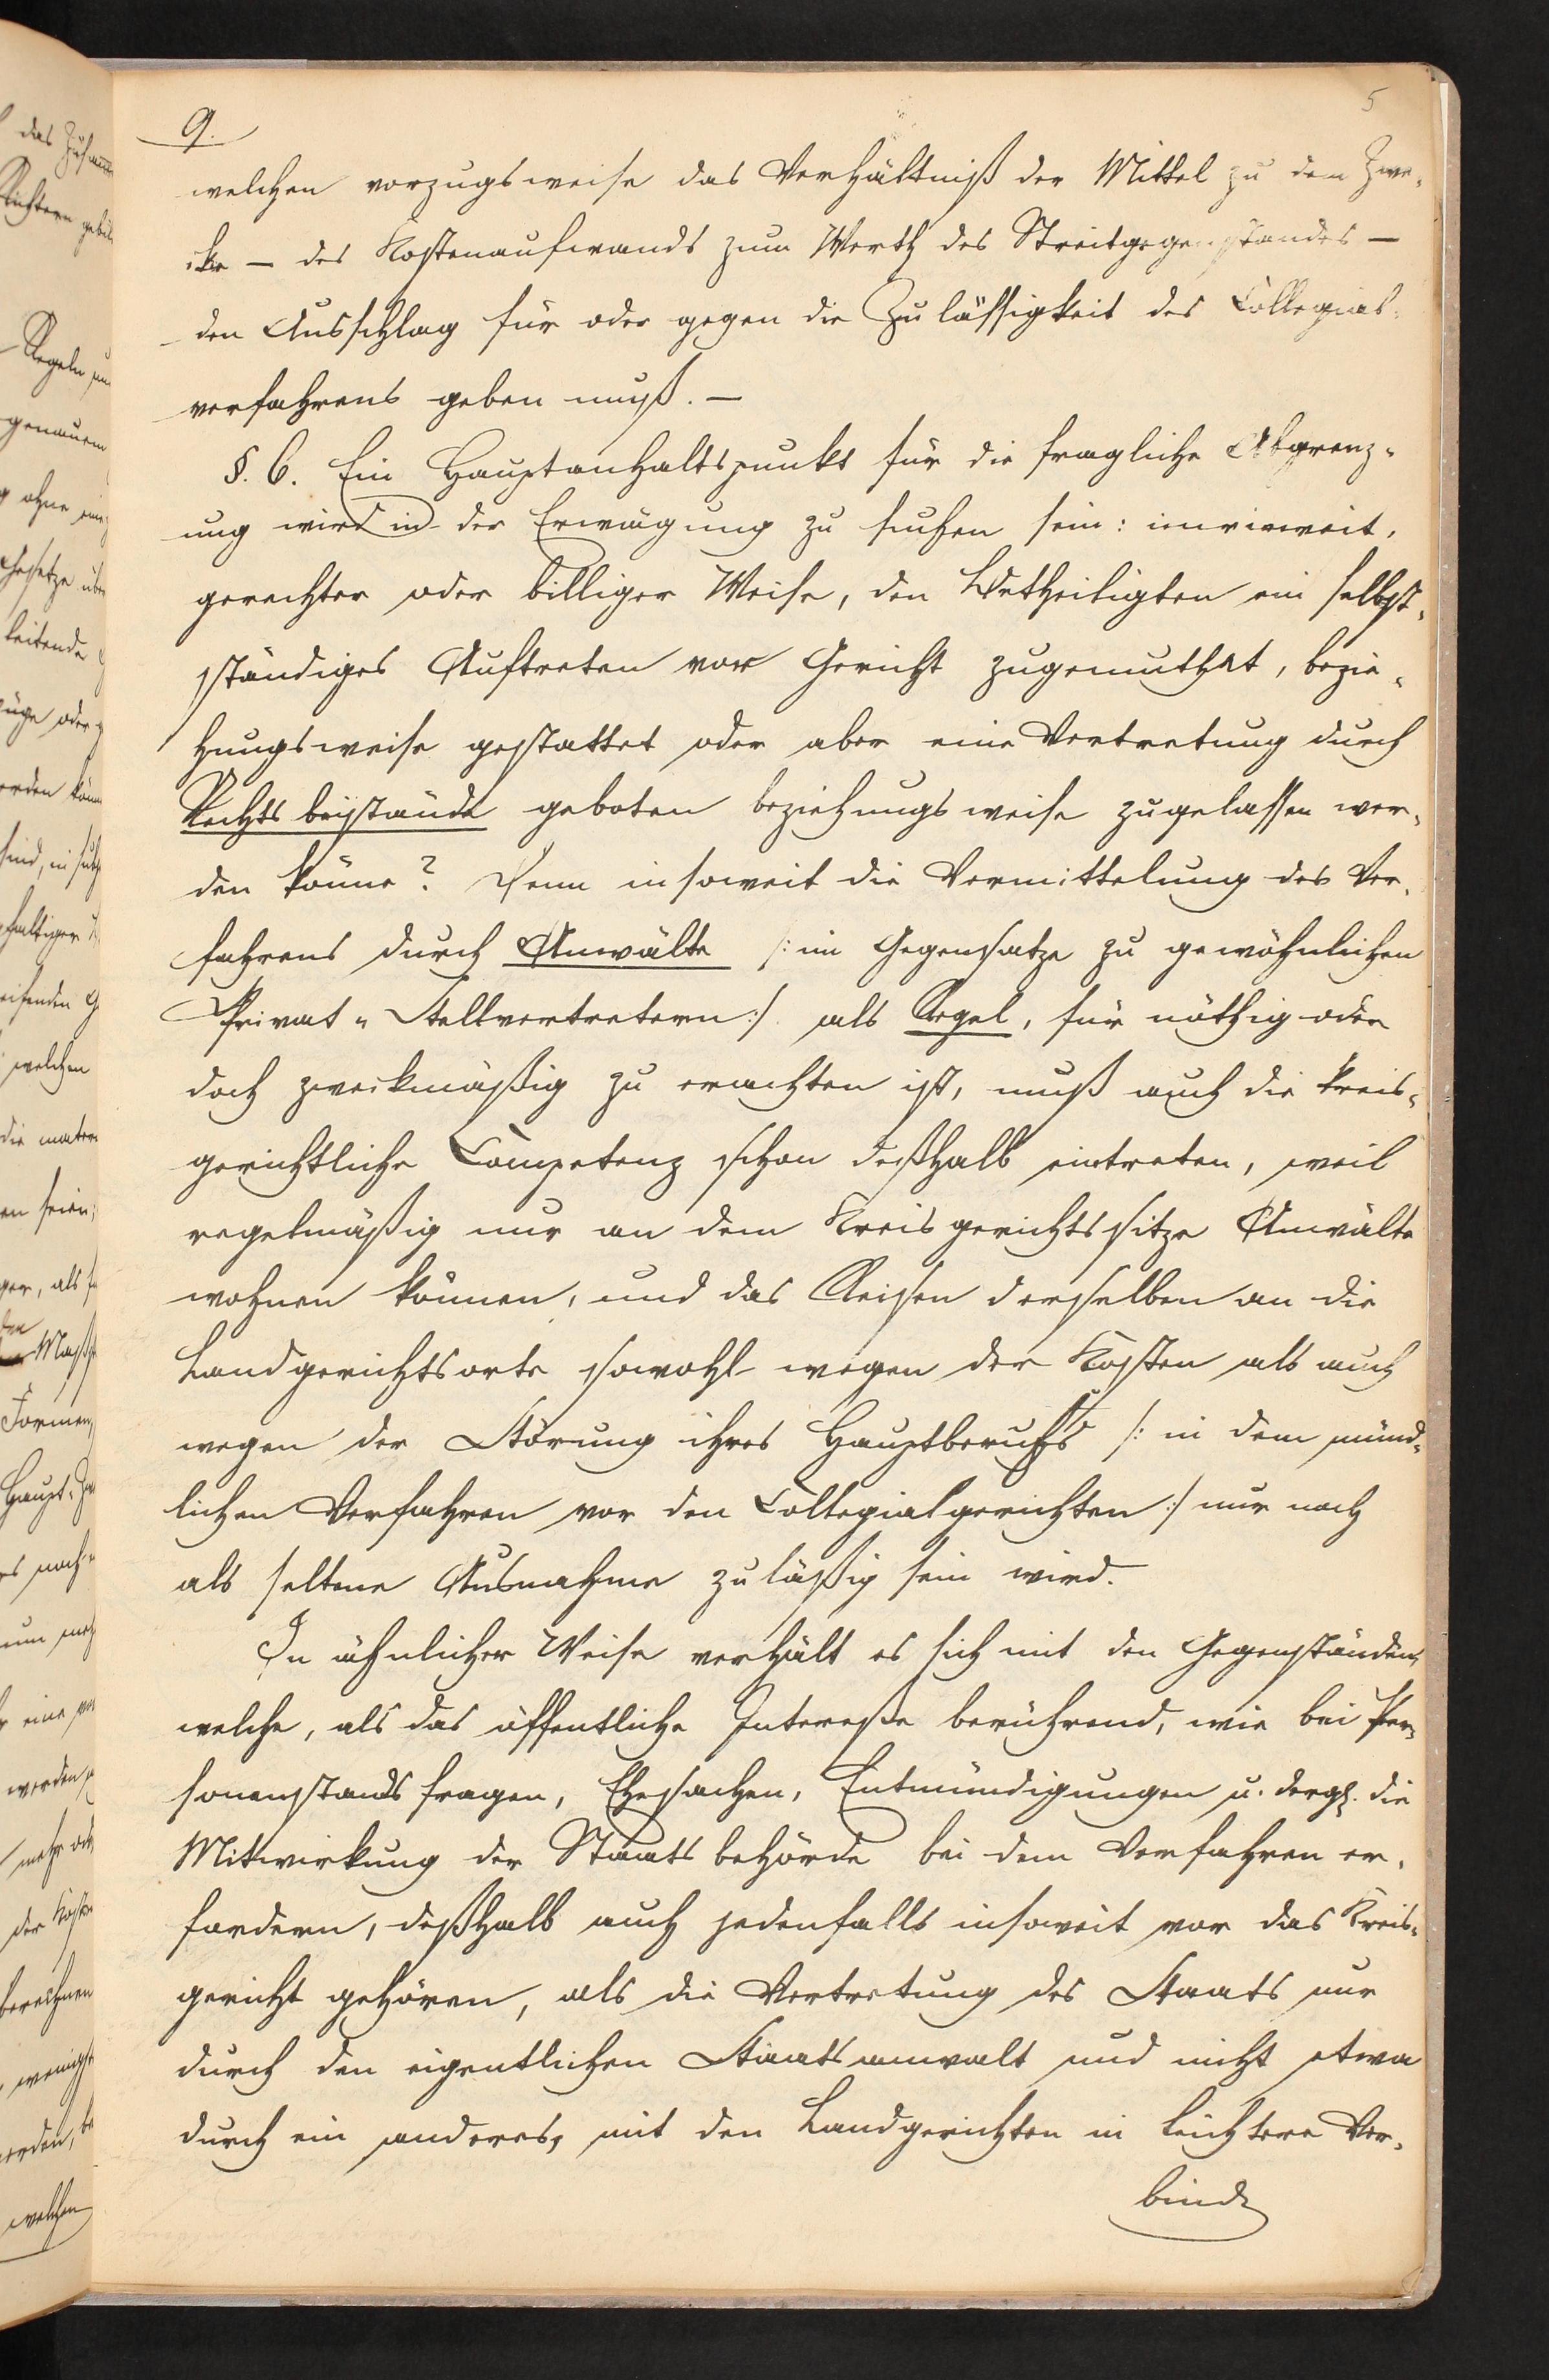 9.
5
welchen vorzugsweise das Verhältniß der Mittel zu dem Zwe-
cke – des Kostenaufwands zum Werth des Streitgegenstandes –
den Ausschlag für oder gegen die Zulässigkeit des Collegial-
verfahrens geben muß. –
§. 6. Ein Hauptanhaltspunkt für die fragliche Abgrenz-
ung wird in der Erwägung zu suchen sein: inwieweit,
gerechter oder billiger Weise, den Betheiligten ein selbst-
ständiges Auftreten vor Gericht zugemuthet, bezie-
hungsweise gestattet oder aber eine Vertretung durch
Rechtsbeistände geboten beziehungsweise zugelassen wer-
den könne? Denn insoweit die Vermittelung des Ver-
fahrens durch Anwälte /: im Gegensatze zu gewöhnlichen
Privat-Stellvertretern :/ als Regel, für nöthig oder
doch zweckmäßig zu erachten ist, muß auch die kreis-
gerichtliche Competenz schon deßhalb eintreten, weil
regelmäßig nur an dem Kreisgerichtssitze Anwälte
wohnen können, und das Reisen derselben an die
Landgerichtsorte sowohl wegen der Kosten als auch
wegen der Störung ihres Hauptberufs /: in dem münd-
lichen Verfahren vor den Collegialgerichten :/ nur noch
als seltene Ausnahme zuläßig sein wird.
In ähnlicher Weise verhält es sich mit den Gegenständen,
welche, als das öffentliche Intereße berührend, wie bei Per-
sonenstandsfragen, Ehesachen, Entmündigungen u. dergl. die
Mitwirkung der Staatsbehörde bei dem Verfahren er-
fordern, deßhalb auch jedenfalls insoweit vor das Kreis-
gericht gehören, als die Vertretung des Staats nur
durch den eigentlichen Staatsanwalt und nicht etwa
durch ein anderes, mit den Landgerichten in leichtere Ver-
bind